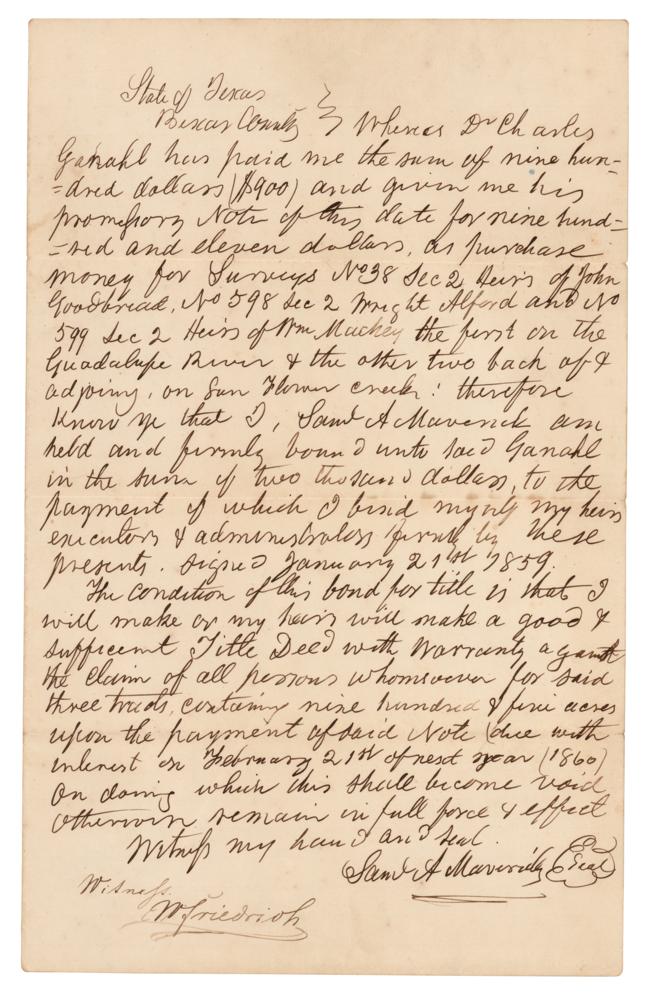 State of Texas
Bexar County } Whereas Dr Charles
Ganahl has paid me the sum of nine hun-
=dred dollars ($900) and given me his
promissory Note of this date for nine hund=
=red and eleven dollars, as purchase
money for Surveys No 38 Sec 2 Heirs of John
Goodbread, No 598 Sec 2 Wright Alford and No
599 Sec 2 Heirs of Wm Mackey the first on the
Guadalupe River & the other two back of &
adjoing, on Sun Flower creek: therefore
Know ye that I, Saml A Maverick am
held and firmly bound unto said Ganahl
in the sum of two thousand dollars, to the
payment of which I bind myself my heirs
executors & administrators firmly by these
presents. signed January 21st 1859.
The condition of this bond for title is that I
will make or my heirs will make a good &
sufficient Title Deed with Warranty against
the claim of all persons whomsoever for said
three tracts, containing nine hundred & five acres
upon the payment of said Note (due with
interest on February 21st of next year (1860)
On doing which this shall become void
otherwise remain in full force & effect
Witness my hand and seal.
Saml A Maverick Seal
Witness.
W Friedrich